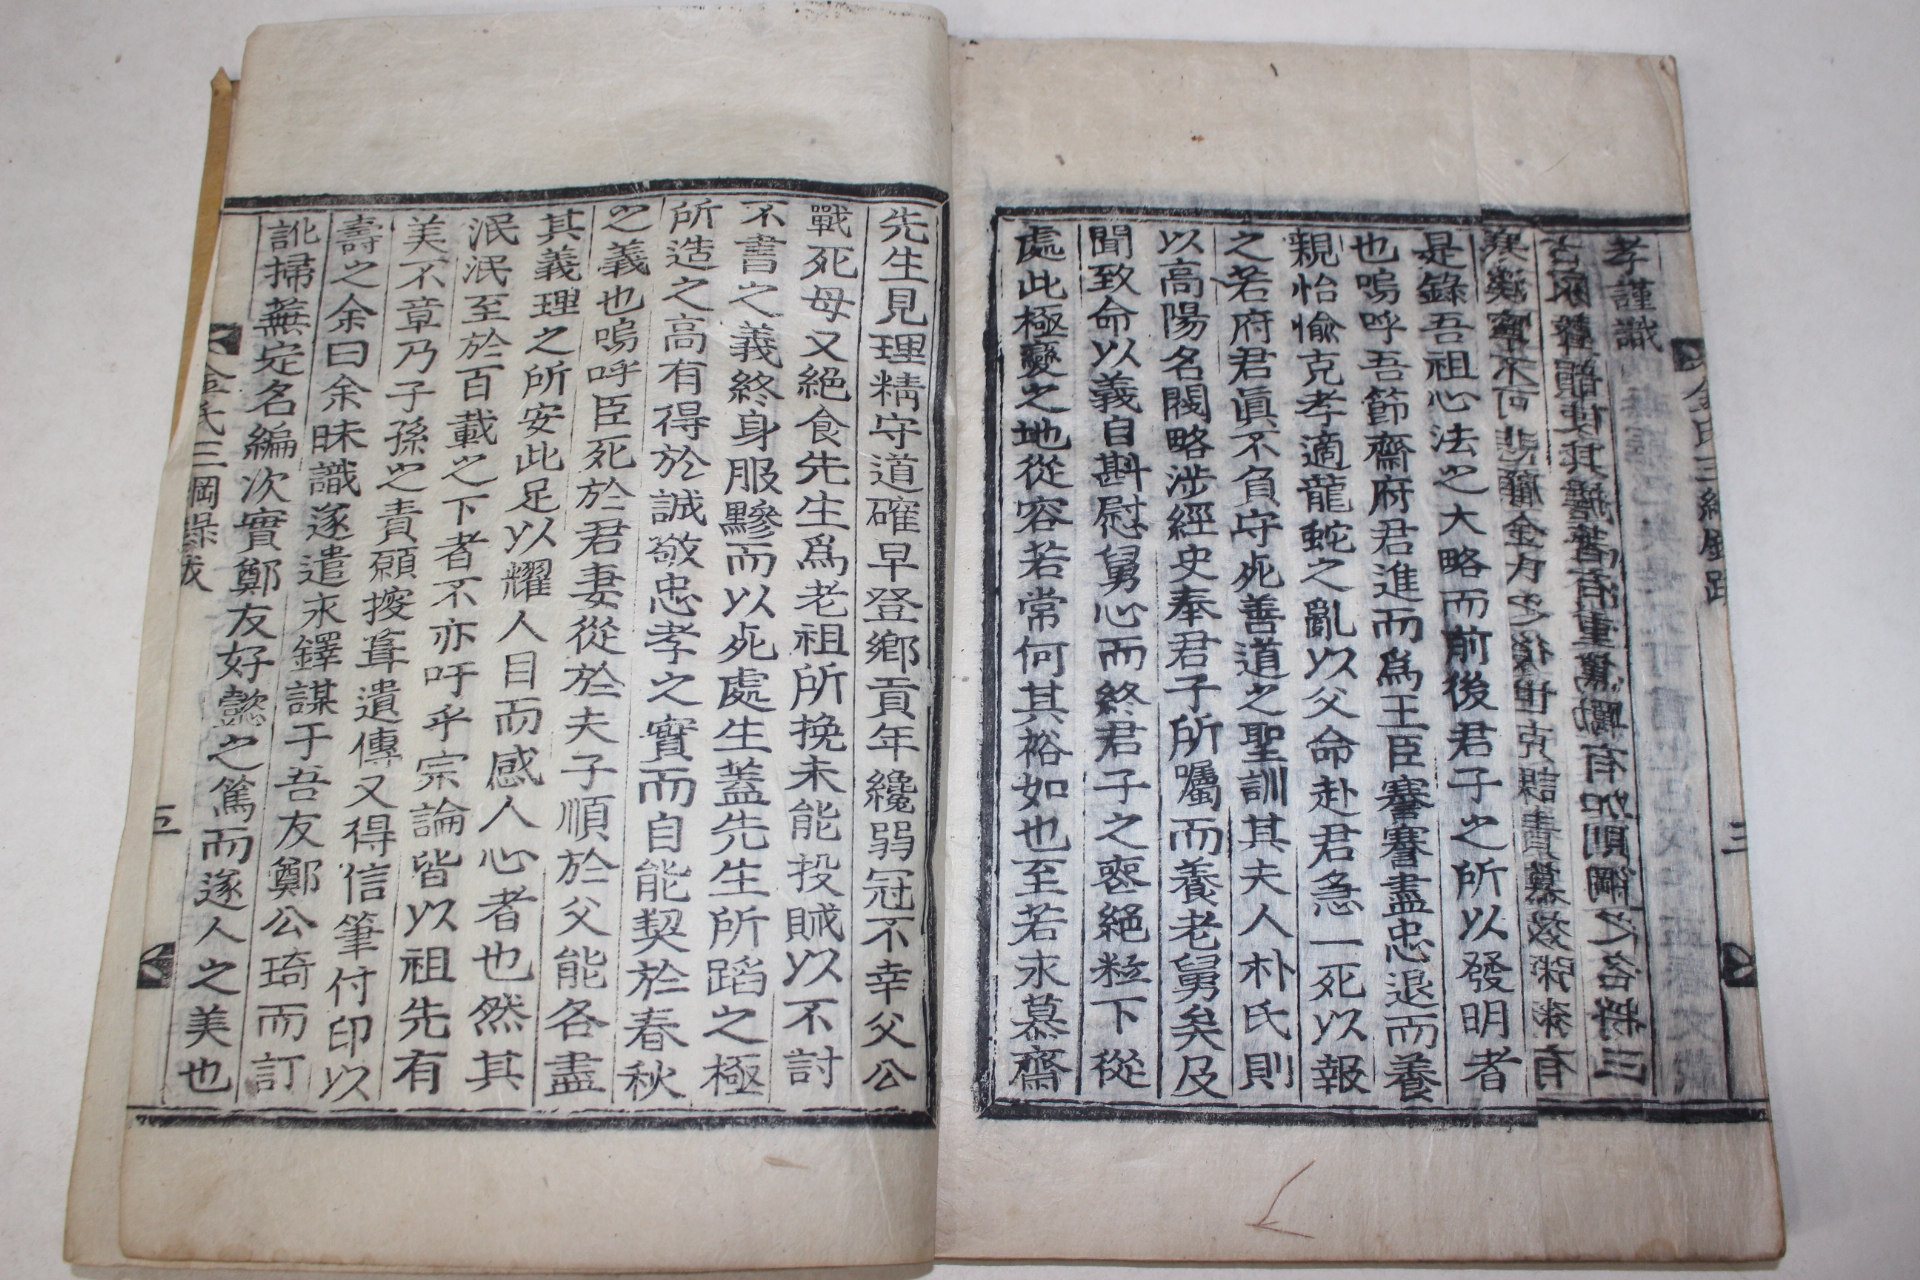 孝謹識
是錄吾祖心法之大略而前後君子之所以發明者
也嗚呼吾節齋府君進而爲王臣蹇蹇盡忠退而養
親怡愉克孝適龍蛇之亂以父命赴君急一死以報
之若府君眞不負守死善道之聖訓其夫人朴氏則
以高陽名閥略涉經史奉君子所囑而養老舅矣及
聞致命以義自斟慰舅心而終君子之喪絕粒下從
處此極變之地從容若常何其裕如也至若永慕齋
先生見理精守道確早登鄕貢年纔弱冠不幸父公
戰死母又絕食先生爲老祖所挽未能投賊以不討
不書之義終身服黲而以死處生蓋先生所蹈之極
所造之高有得於誠敬忠孝之實而自能契於春秋
之義也嗚呼臣死於君妻從於夫子順於父能各盡
其義理之所安此足以耀人目而感人心者也然其
泯泯至於百載之下者不亦吁乎宗論皆以祖先有
美不章乃子孫之責願搜葺遺傳又得信筆付印以
壽之余曰余昧識遂遣永鐸謀于吾友鄭公琦而訂
訛掃蕪定名編次實鄭友好懿之篤而遂人之美也
金氏三綱錄跋
三